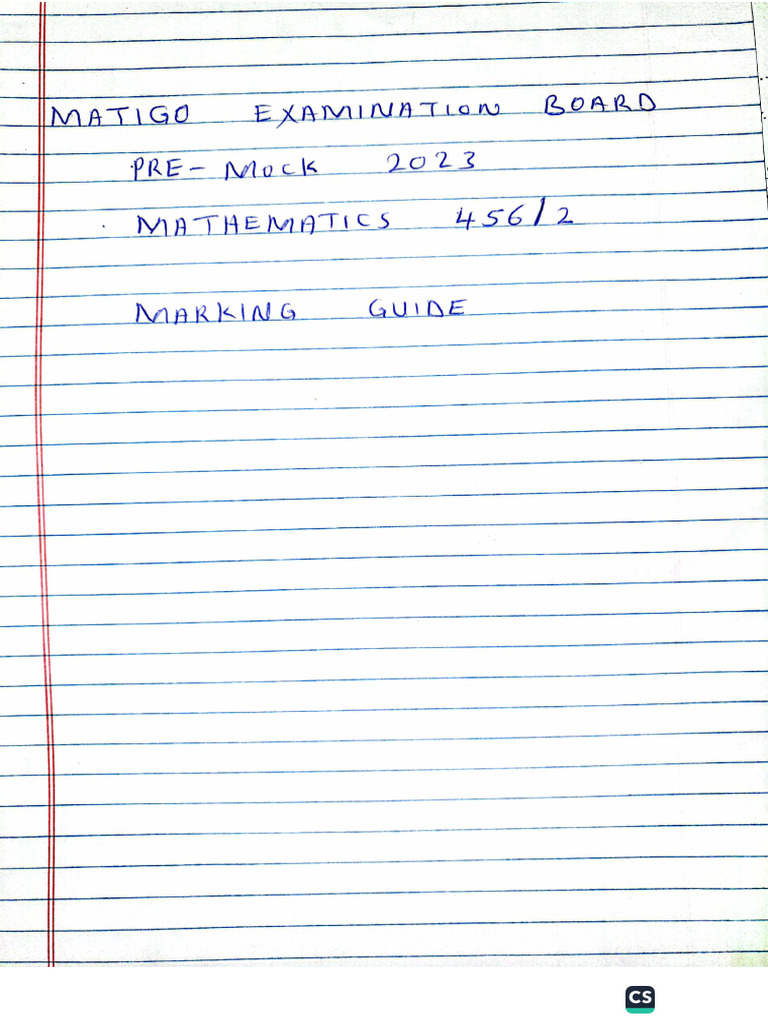 MATIGO EXAMINATION BOARD
PRE-MOCK 2023
MATHEMATICS 456/2
MARKING GUIDE
CS